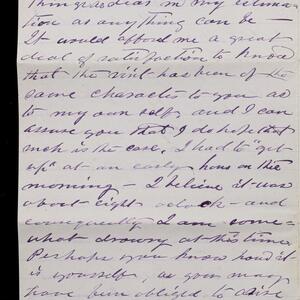 ideas in my estima-
tion as anything can be —
It would afford me a great
deal of satisfaction to know
that the visit has been of the
same character to you as
to my own self, and I can
assure you that I do hope that
such is the case. I had to "get
up" at an early hour this
morning — I believe it was
about eight o clock — and
consequently I am some-
what drowsy at this time.
Perhaps you know how it
is yourself, as you may
have been obliged to arise